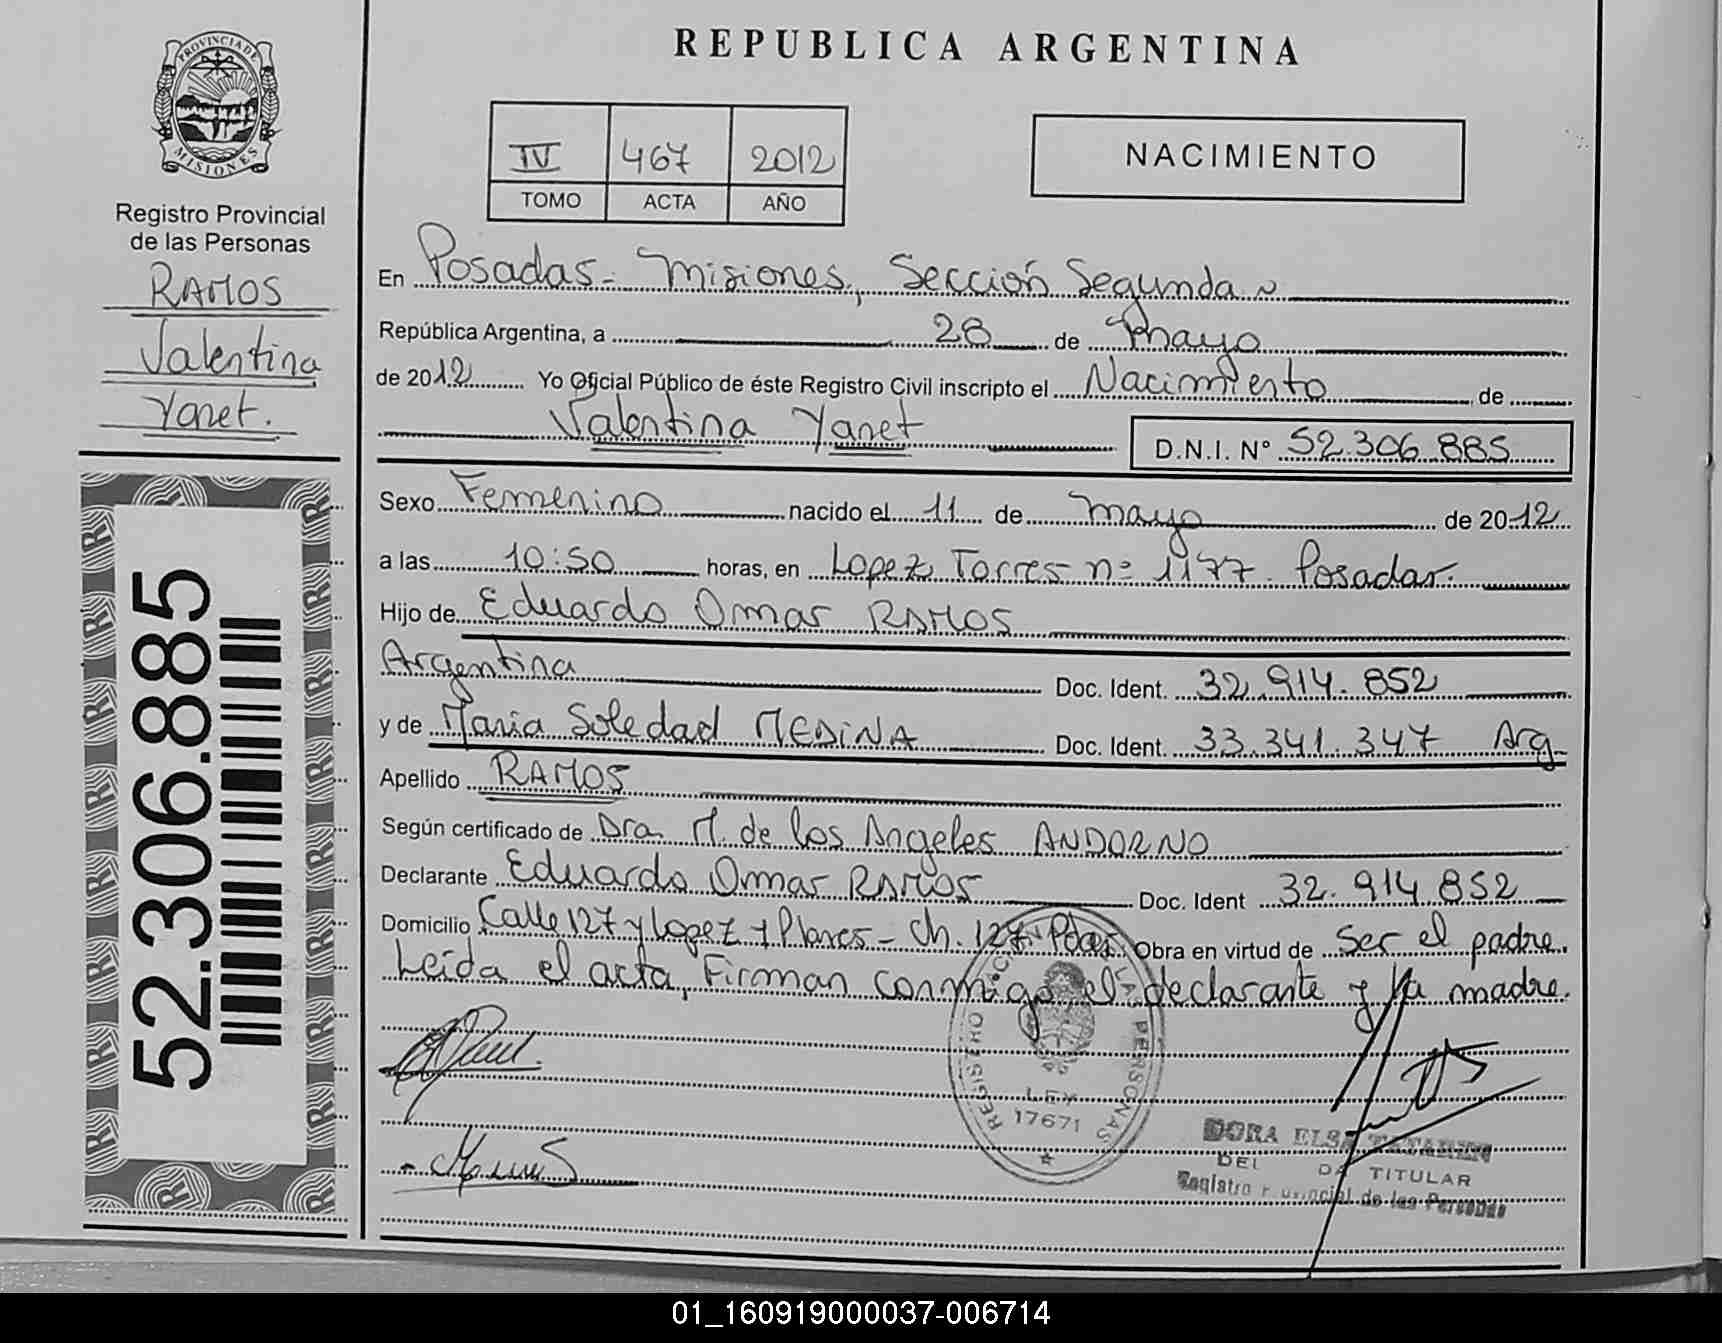 PROVINCIA DE
MISIONES
Registro Provincial
de las Personas
RAMOS
Valentina
Yanet.
52.306.885
REPUBLICA ARGENTINA
IV 467 2012
TOMO ACTA AÑO
NACIMIENTO
En Posadas - Misiones, Sección Segunda
República Argentina, a 28 de Mayo
de 2012 Yo Oficial Público de éste Registro Civil inscripto el Nacimiento, de
Valentina Yanet D.N.I. N° 52.306.885
Sexo Femenino nacido el 11 de mayo de 2012
a las 10:50 horas, en Lopez Torres nº 1177. Posadas.
Hijo de Eduardo Omar RAMOS
Argentina Doc. Ident. 32.914.852
y de Maria Soledad MEDINA Doc. Ident. 33.341.347 Arg
Apellido RAMOS
Según certificado de Dra. M. de los Angeles ANDORNO
Declarante Eduardo Omar RAMOS Doc. Ident 32.914.852
Domicilio Calle 127 y Lopez y Planes - Ch. 127 - Pdas. Obra en virtud de Ser el padre.
Leída el acta, Firman conmigo el declarante y la madre.
REGISTRO NAC PERSONAS
LEY
17671
DORA ELSA
DEL TITULAR
Registro Provincial de las Personas
01_160919000037-006714